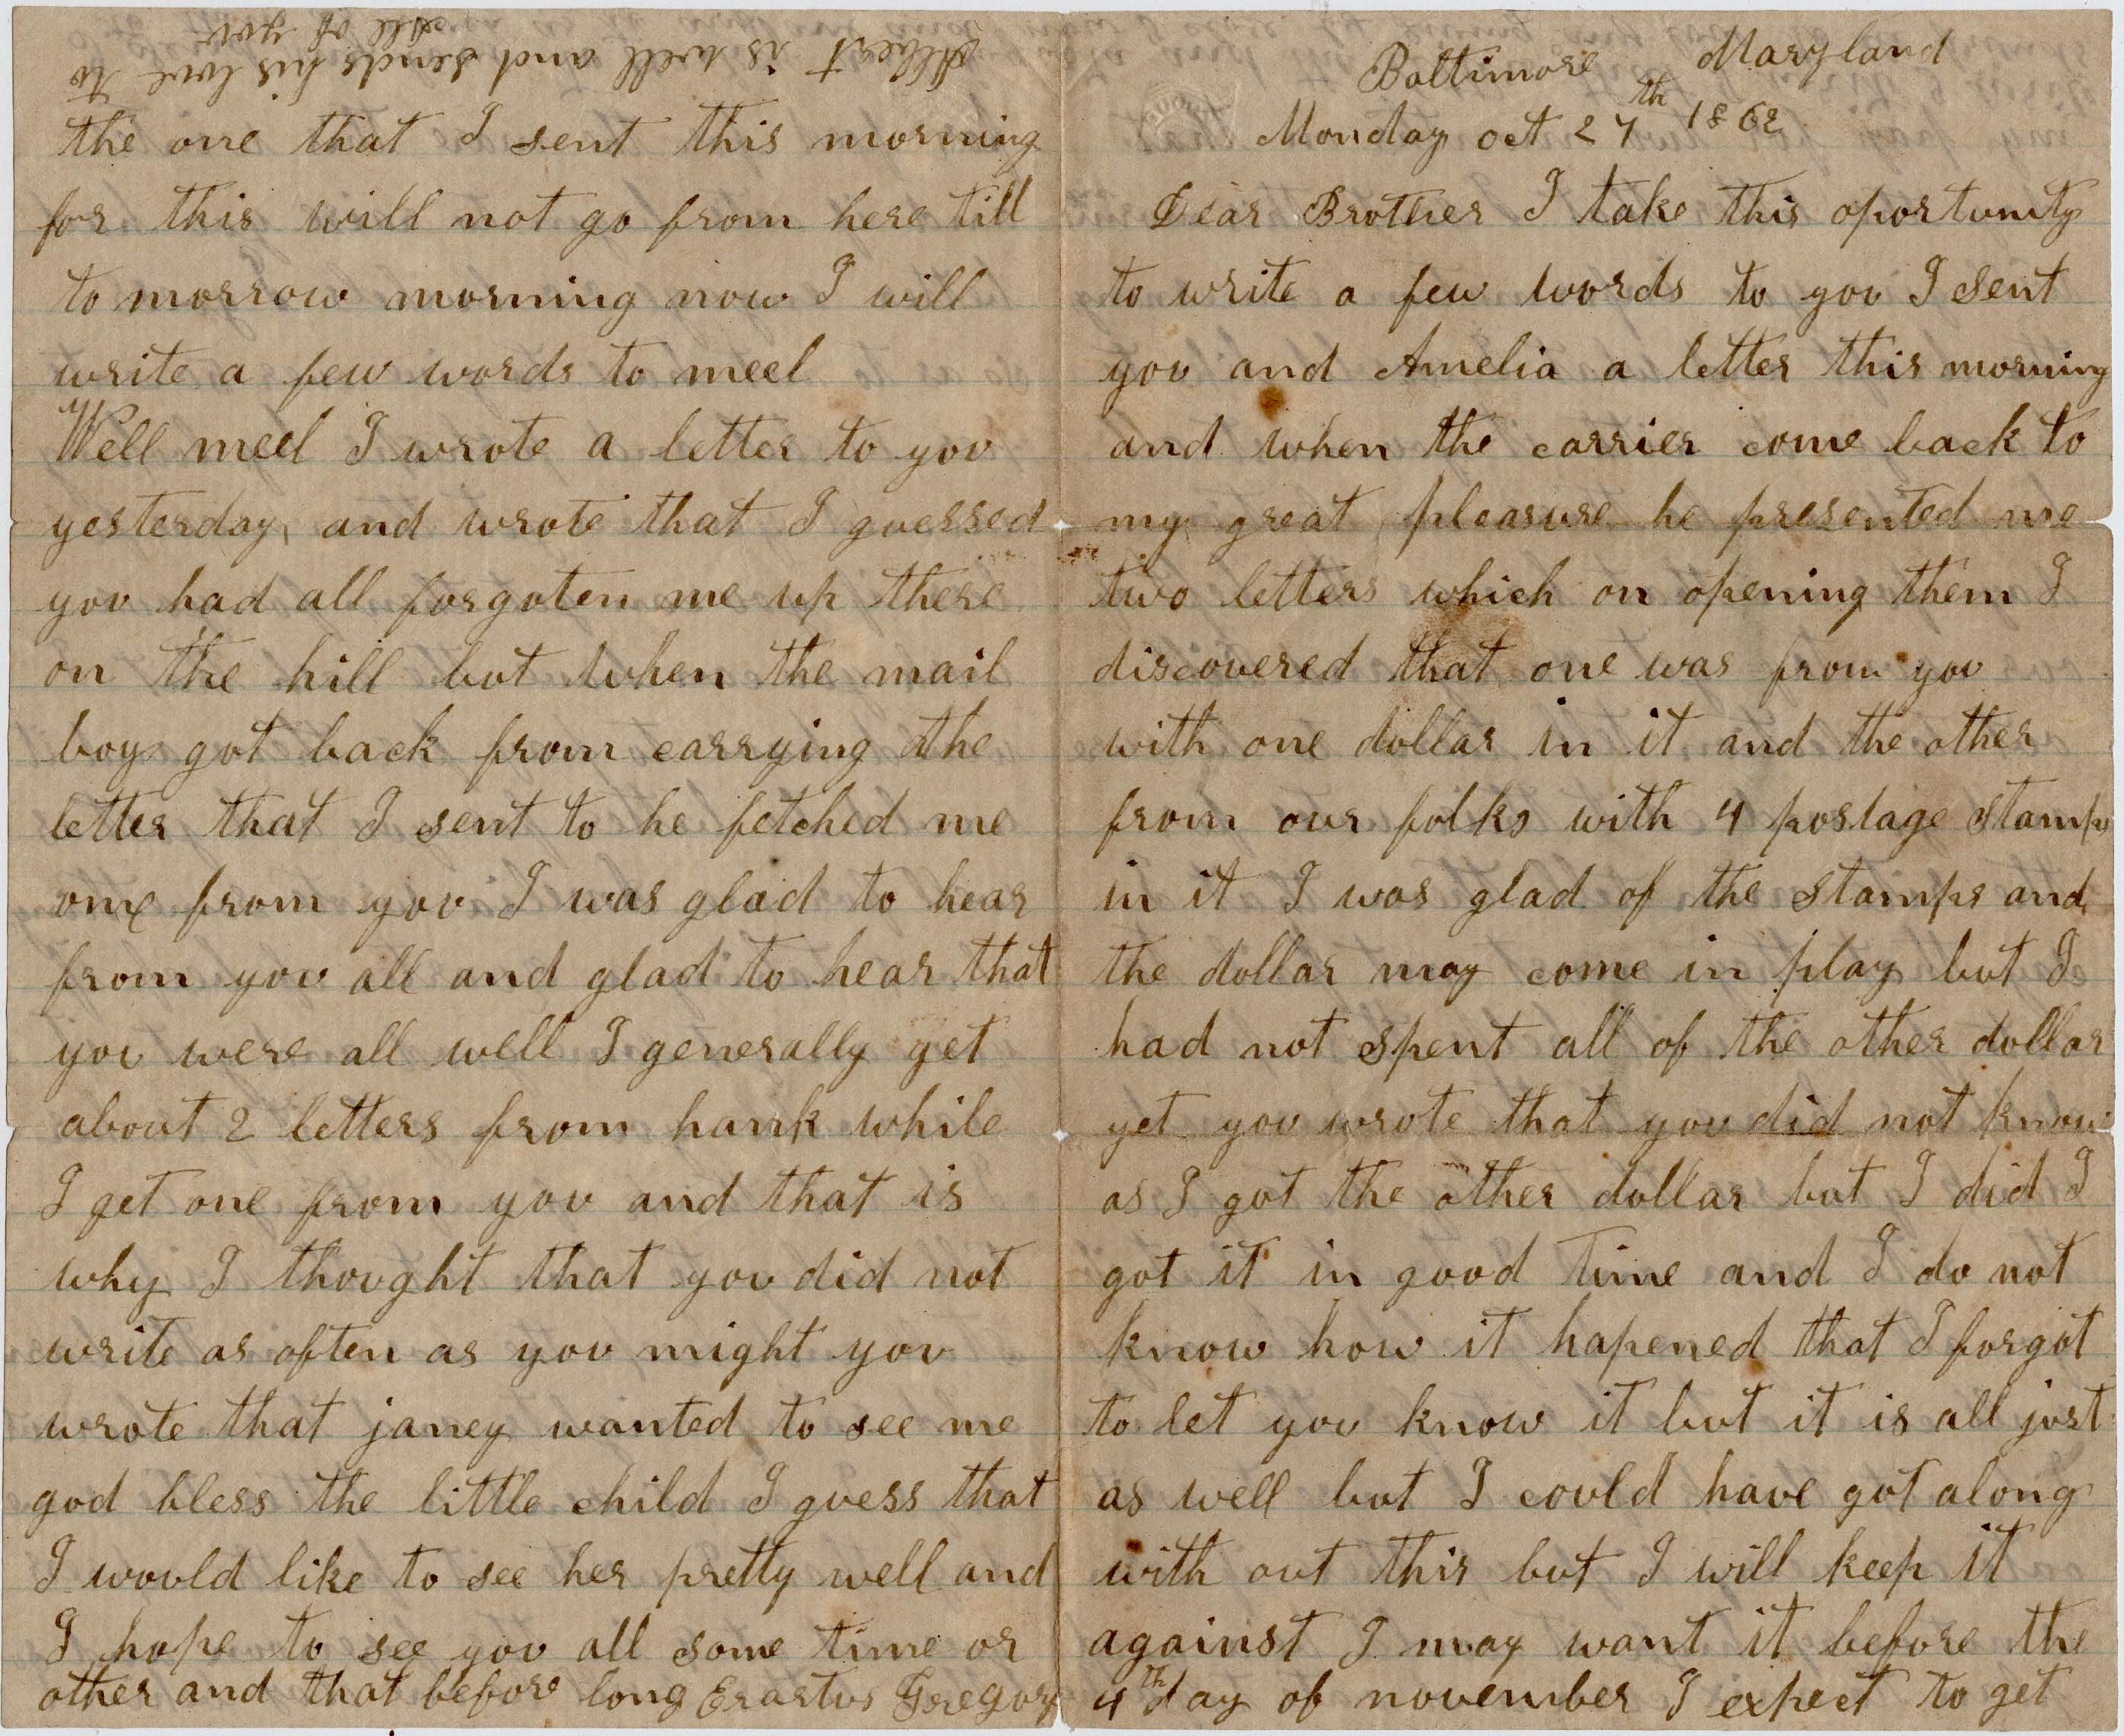 Baltimore Maryland
Monday oct 27th 1862
Dear Brother I take this oportunity
to write a few words to you I sent
you and Amelia a letter this morning
and when the carrier come back to
my great pleasure he presented me
two letters which on opening them I
discovered that one was from you
with one dollar in it and the other
from our folks with 4 postage stamps
in it I was glad of the stamps and
the dollar may come in play but I
had not spent all of the other dollar
yet you wrote that you did not know
as I got the other dollar but I did I
got it in good time and I do not
know how it hapened that I forgot
to let you know it but it is all just
as well but I could have got along
with out this but I will keep it
against I may want it before the
4th day of november I expect to get
the one that I sent this morning
for this will not go from here till
to morrow morning now I will
write a few words to meel
Well meel I wrote a letter to you
yesterday and wrote that I guessed
you had all forgoten me up there
on the hill but when the mail
boy got back from carrying the
letter that I sent to he fetched me
one from you I was glad to hear
from you all and glad to hear that
you were all well I generally get
about 2 letters from hank while
I get one from you and that is
why I thought that you did not
write as often as you might you
wrote that janey wanted to see me
god bless the little child I guess that
I would like to see her pretty well and
I hope to see you all some time or
other and that before long Erastus Gregory
Albert is well and sends his love to
All of you